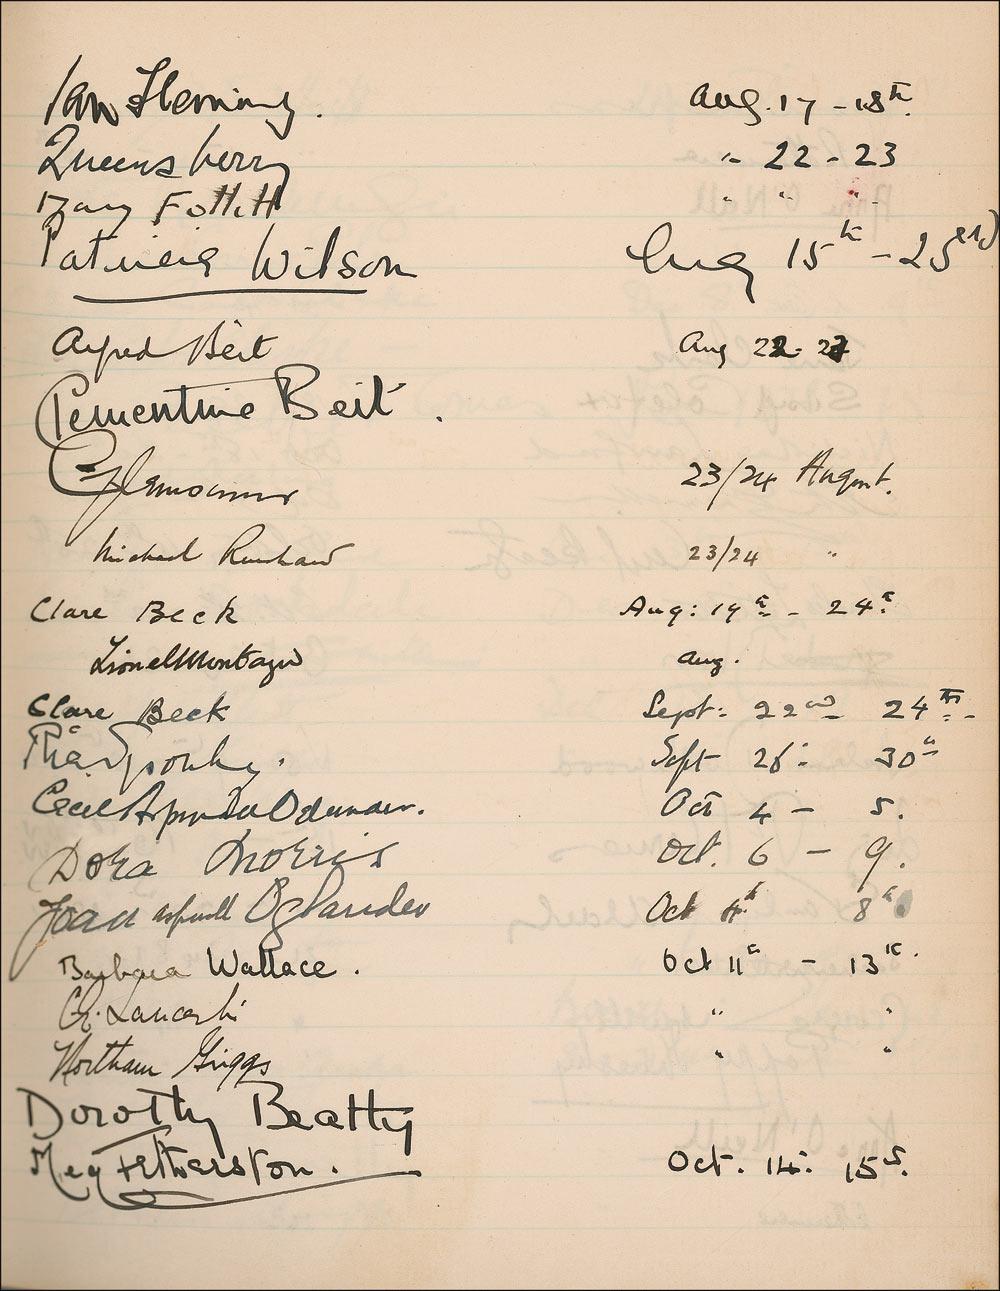 Ian Fleming. Aug. 17 - 18th.
Queensberry " 22 - 23
Mary Follett " " "
Patricia Wilson Aug 15th - 25
Alfred Beit Aug 22 - 27
Clementine Beit.
23/24 August.
Michael Renshaw 23/24 "
Clare Beck Aug: 19th - 24th
Lionel Montagu Aug.
Clare Beck Sept: 22nd - 24th -
Sept 26 - 30th
Cecil Oct 4 - 5.
Dora Morris Oct. 6 - 9.
Joan Aspinall Oglander Oct 8th
Barbara Wallace. Oct 11th - 13th.
" "
Northam Griggs " "
Dorothy Beatty
Meg Fetherston. Oct. 14. 15